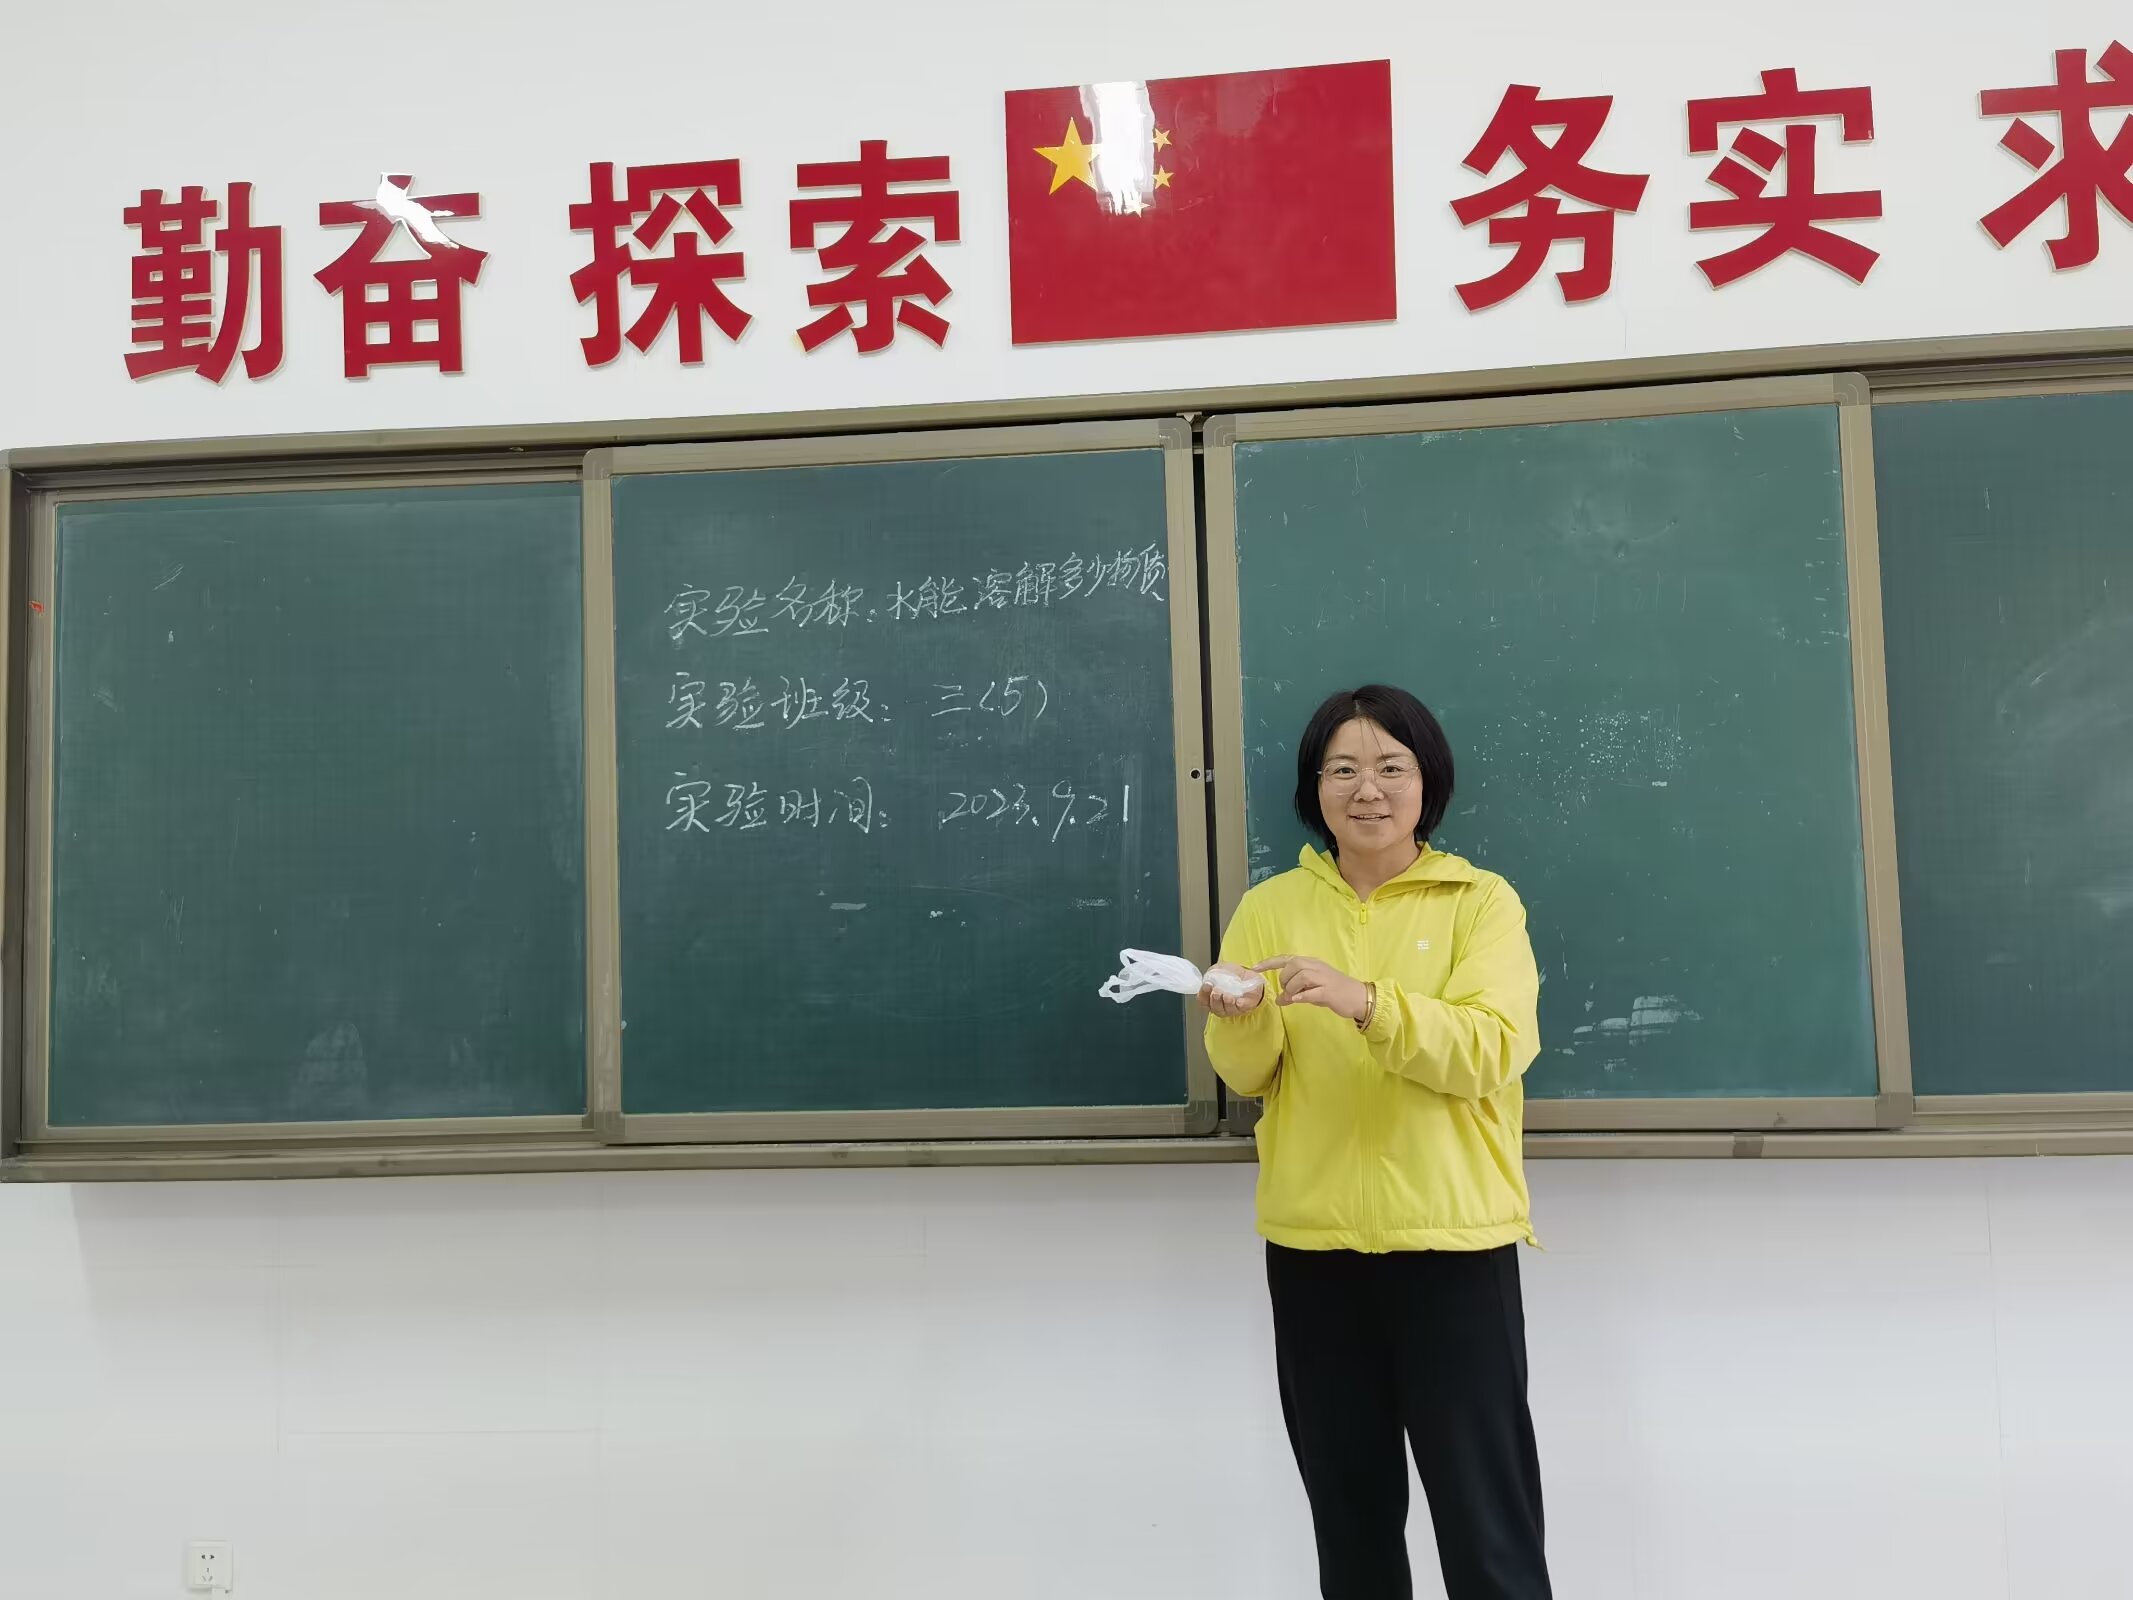 勤奋 探索 务实 求
实验名称：水能溶解多少物质
实验班级：三(5)
实验时间：2023.9.21